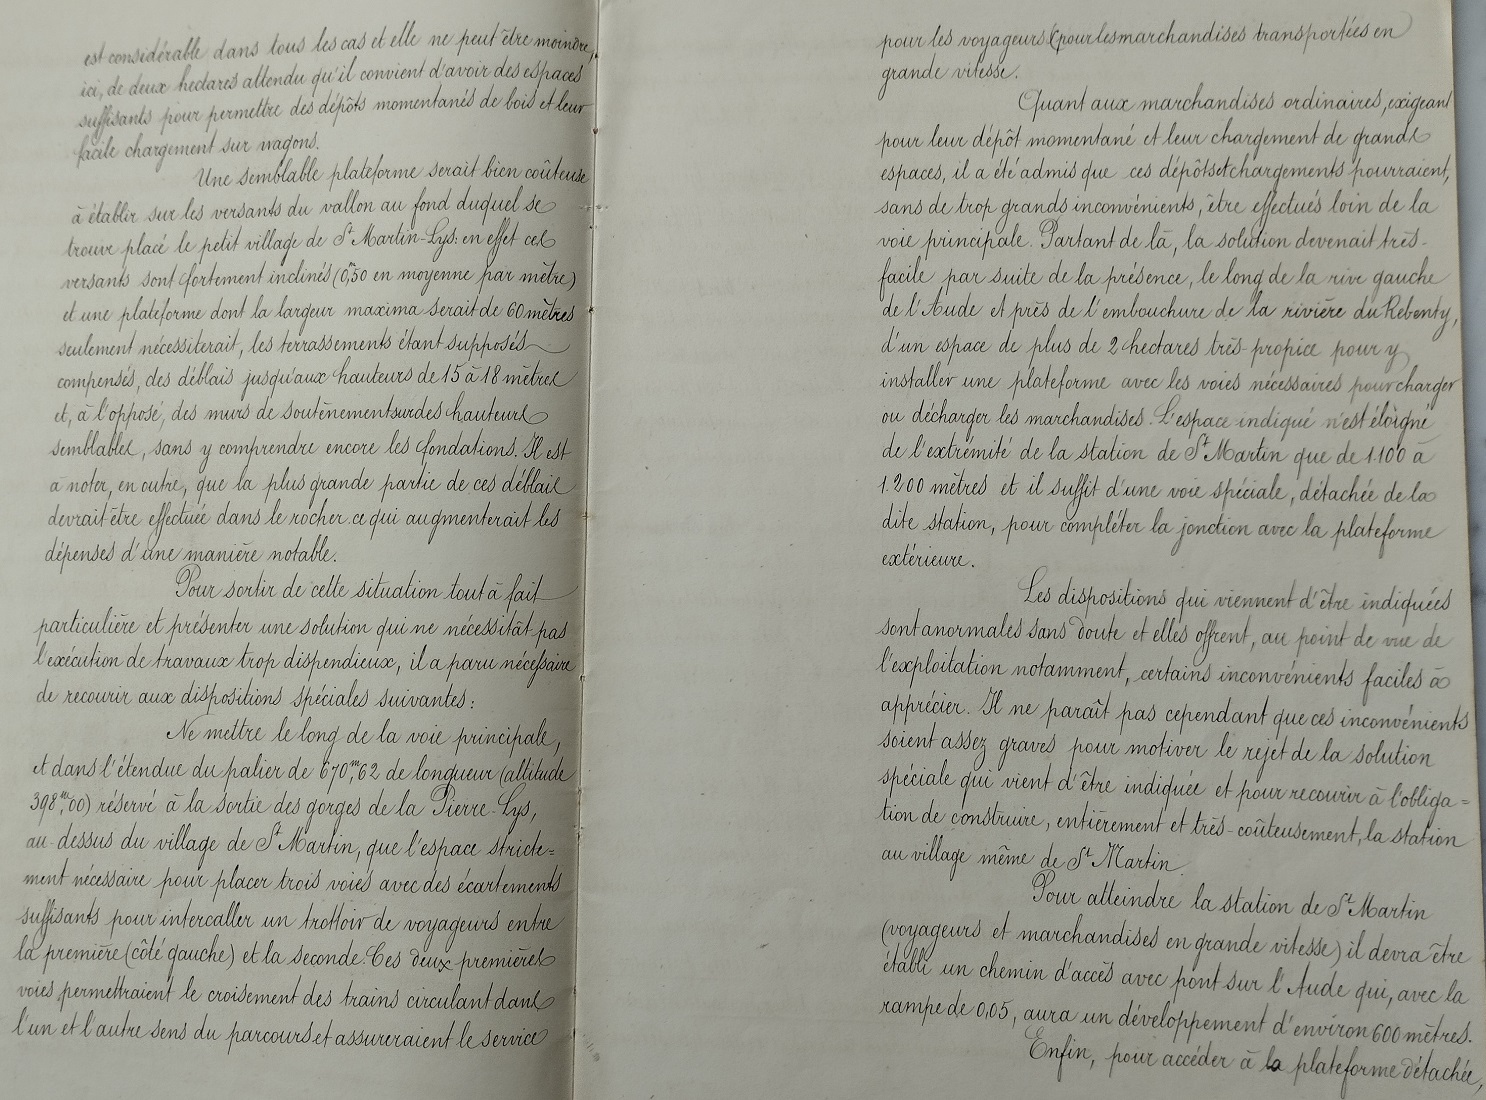 est considérable dans tous les cas et elle ne peut être moindre,
ici, de deux hectares attendu qu'il convient d'avoir des espaces
suffisants pour permettre des dépôts momentanés de bois et leur
facile chargement sur wagons.
Une semblable plateforme serait bien coûteuse
à établir sur les versants du vallon au fond duquel se
trouve placé le petit village de St Martin-Lys: en effet ces
versants sont fortement inclinés (0,m50 en moyenne par mètre)
et une plateforme dont la largeur maxima serait de 60 mètres
seulement nécessiterait, les terrassements étant supposés
compensés, des déblais jusqu'aux hauteurs de 15 à 18 mètres
et, à l'opposé, des murs de soutènement sur des hauteurs
semblables, sans y comprendre encore les fondations. Il est
à noter, en outre, que la plus grande partie de ces déblais
devrait être effectuée dans le rocher ce qui augmenterait les
dépenses d'une manière notable.
Pour sortir de cette situation tout à fait
particulière et présenter une solution qui ne nécessitât pas
l'exécution de travaux trop dispendieux, il a paru nécessaire
de recourir aux dispositions spéciales suivantes:
Ne mettre le long de la voie principale,
et dans l'étendue du palier de 670,m62 de longueur (altitude
398,m00) réservé à la sortie des gorges de la Pierre-Lys,
au-dessus du village de St Martin, que l'espace stricte=
ment nécessaire pour placer trois voies avec des écartements
suffisants pour intercaller un trottoir de voyageurs entre
la première (côté gauche) et la seconde. Ces deux premières
voies permettraient le croisement des trains circulant dans
l'un et l'autre sens du parcours et assureraient le service
pour les voyageurs & pour les marchandises transportées en
grande vitesse.
Quant aux marchandises ordinaires, exigeant
pour leur dépôt momentané et leur chargement de grands
espaces, il a été admis que ces dépôts et chargements pourraient,
sans de trop grands inconvénients, être effectués loin de la
voie principale. Partant de là, la solution devenait très-
facile par suite de la présence, le long de la rive gauche
de l'Aude et près de l'embouchure de la rivière du Rebenty,
d'un espace de plus de 2 hectares très-propice pour y
installer une plateforme avec les voies nécessaires pour charger
ou décharger les marchandises. L'espace indiqué n'est éloigné
de l'extrémité de la station de St Martin que de 1.100 à
1.200 mètres et il suffit d'une voie spéciale, détachée de la
dite station, pour compléter la jonction avec la plateforme
extérieure.
Les dispositions qui viennent d'être indiquées
sont anormales sans doute et elles offrent, au point de vue de
l'exploitation notamment, certains inconvénients faciles à
apprécier. Il ne paraît pas cependant que ces inconvénients
soient assez graves pour motiver le rejet de la solution
spéciale qui vient d'être indiquée et pour recourir à l'obliga=
tion de construire, entièrement et très-coûteusement, la station
au village même de St Martin.
Pour atteindre la station de St Martin
(voyageurs et marchandises en grande vitesse) il devra être
établi un chemin d'accès avec pont sur l'Aude qui, avec la
rampe de 0,05, aura un développement d'environ 600 mètres.
Enfin, pour accéder à la plateforme détachée,